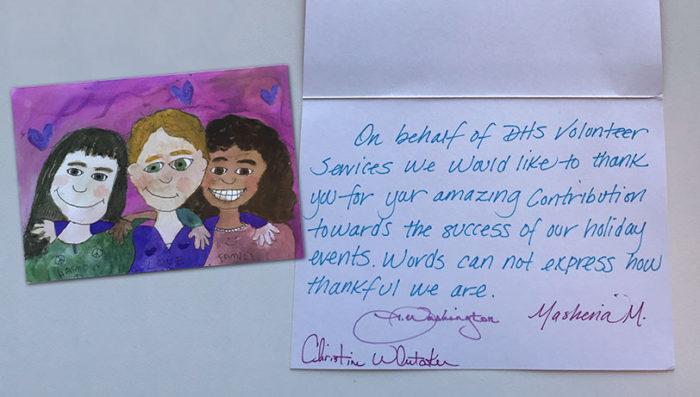 FAMILY
On behalf of DHS Volunteer
Services we would like to thank
you for your amazing Contribution
towards the success of our holiday
events. Words can not express how
thankful we are.
Washington
M.
Christine Whitaker